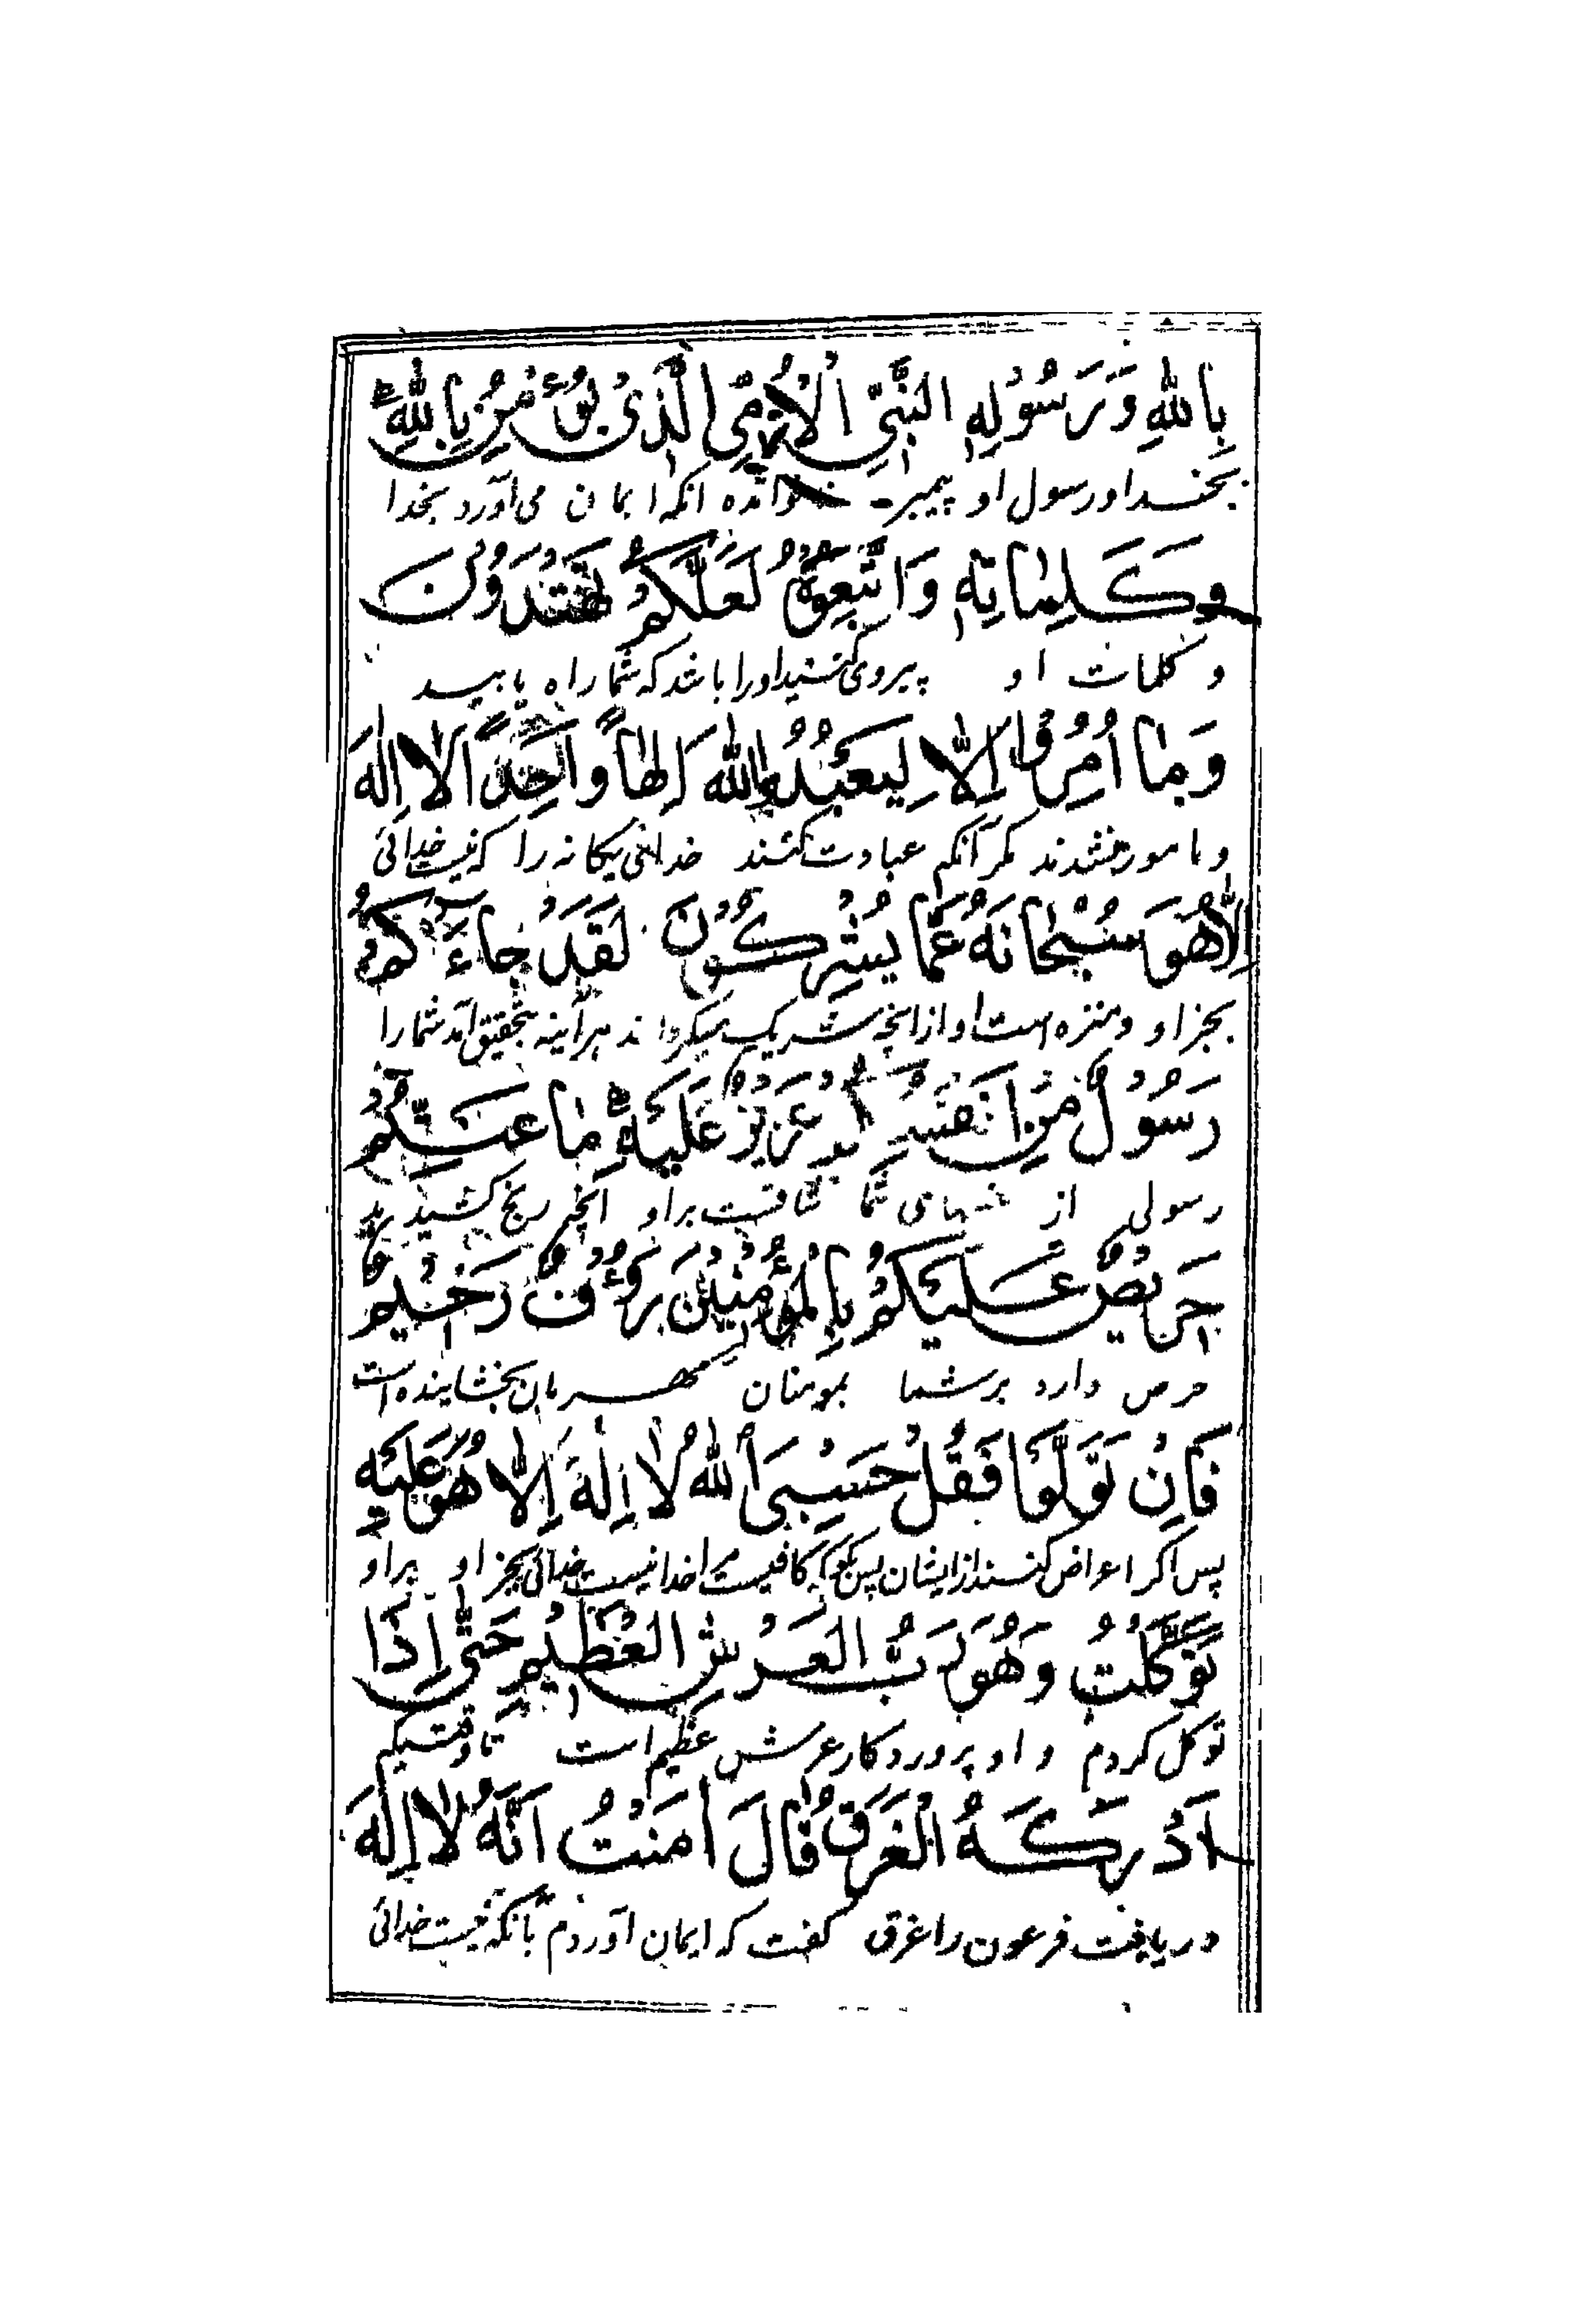 بِاللّٰهِ وَرَسُوْلِهِ النَّبِيِّ الْاُمِّيِّ الَّذِىْ يُؤْمِنُ بِاللّٰهِ
بخدا ورسول او پیمبر خوانده انکه ایمان می آورد بخدا
وَكَلِمَاتِهِ وَاتَّبِعُوْهُ لَعَلَّكُمْ تَهْتَدُوْنَ
و کلمات او پیروی کنید اورا باشد که شما راه یابید
وَمٰا اُمِرُوْا اِلَّا لِيَعْبُدُوا اللّٰهَ اِلٰهاً وَاحِداً لَا اِلٰهَ
و مامور نشدند مکر آنکه عبادت کنند خدائی یکانه را که نیست خدائی
اِلَّا هُوَ سُبْحٰانَهُ عَمَّا يُشْرِكُوْنَ لَقَدْ جٰاءَكُمْ
بجز او و منزه است او از انچه شریک میکردانند هرآینه بتحقیق آمد شما را
رَسُوْلٌ مِنْ اَنْفُسِكُمْ عَزِيْزٌ عَلَيْهِ مٰا عَنِتُّمْ
رسولی از شما براو آنچه رنج کشیدید
حَرِيْصٌ عَلَيْكُمْ بِالْمُؤْمِنِيْنَ رَؤُفٌ رَحِيْمٌ
حرص دارد بر شما بمومنان مهربان بخشاینده است
فَاِنْ تَوَلَّوْا فَقُلْ حَسْبِيَ اللّٰهُ لٰا اِلٰهَ اِلَّا هُوَ عَلَيْهِ
پس اکر اعراض کنند از ایشان پس بکو که کافیست مرا خدا نیست خدائی بجز او براو
تَوَكَّلْتُ وَهُوَ رَبُّ الْعَرْشِ الْعَظِيْمِ حَتّٰى اِذَا
توکل کردم و او پروردکار عرش عظیم است تا وقتیکه
اَدْرَكَهُ الْغَرَقُ قٰالَ اٰمَنْتُ اَنَّهُ لٰا اِلٰهَ
دریافت فرعون را غرق کفت که ایمان آوردم بآنکه نیست خدائی